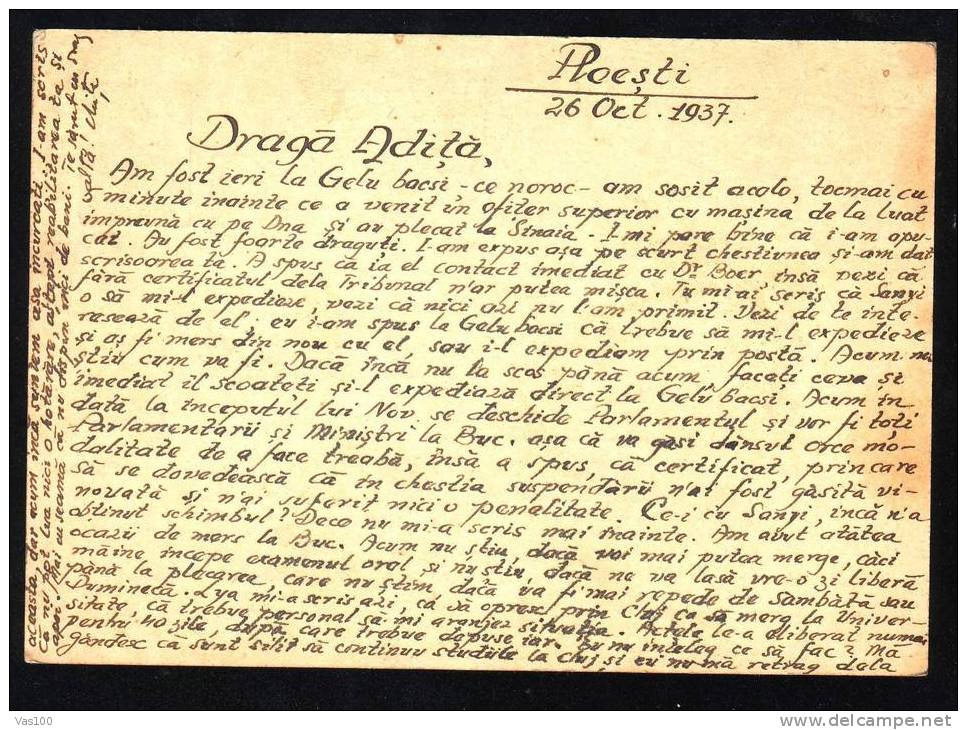 Ploești
26 Oct. 1937.
Dragă Adiță,
Am fost ieri la Gelu bacsi - ce noroc - am sosit acolo, tocmai cu
minute inainte ce a venit un ofiter superior cu mașina de la luat
impreună cu pe Dna și au plecat la Sinaia. I-mi pare bine că i-am apu-
cat. Au fost foarte draguți. I-am expus așa pe scurt chestiunea și-am dat
scrisoarea ta. A spus ca ia el contact imediat cu Dr Boer însă vezi că
fără certificatul dela tribunal n'ar putea mișca. Tu mi-ai scris că Sanyi
o să mi-l expedieze, vezi că nici azi nu l'am primit. Vezi de te inte-
resează de el; eu i-am spus la Gelu bacsi că trebue să mi-l expedieze
și aș fi mers din nou cu el, sau i-l expediam prin poștă. Acum nu
știu cum va fi. Dacă încă nu la scos până acum faceți ceva și
imediat il scoateți și-l expediază direct la Gelu bacsi. Acum in-
dată la începutul lui Nov. se deschide Parlamentul și vor fi toți
Parlamentarii și Miniștri la Buc. așa că va găsi dânsul orce mo-
dalitate de a face treabă, însă a spus, că certificat, prin care
să se dovedească că in chestia suspendării n'ai fost găsită vi-
novată și n'ai suferit nici o penalitate. Ce-i cu Sanyi, încă n'a
obținut schimbul? Dece nu mi-a scris mai inainte. Am avut atâtea
ocazii de mers la Buc. Acum nu știu, dacă voi mai putea merge, căci
mâine incepe examenul oral și nu știu, dacă ne va lasă vre-o zi liberă
până la plecarea, care nu știm, dacă va fi mai repede de Sâmbătă sau
Duminecă. Lya mi-a scris azi, că să opresc prin Cluj ca să merg la Univer-
sitate, că trebue personal să-mi aranjez situația. Actele le-a eliberat numai
pentru 40 zile, după care trebue depuse iar. Eu nu inteleg ce să fac? Mă
gândesc că sunt silit să continuu studiile la Cluj și eu nu mă retrag dela
aceasta, dar acum incă suntem așa incurcați... I-am scris
că nu pot lua nici o hotărâre, aștept reabilitarea ta și
apoi mai cu seamă că nu dispun nici de bani. Te sărut cu drag
Vas100
delcampe.net